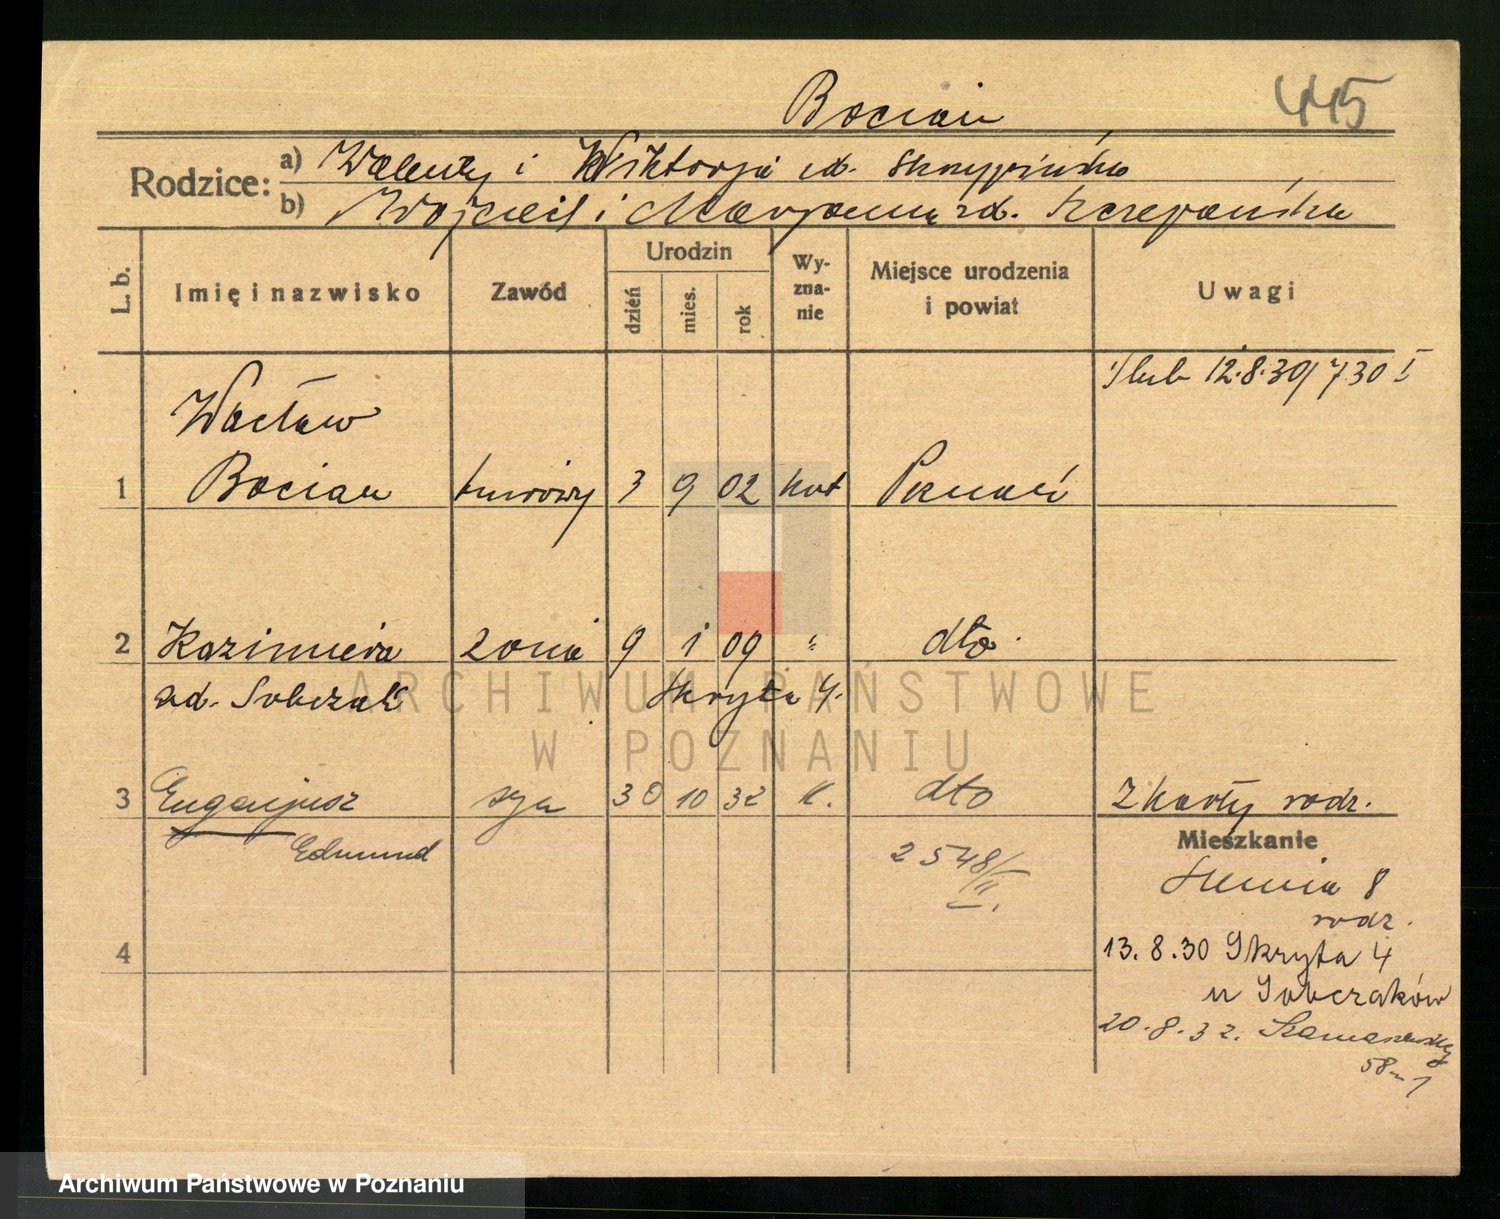 Bocian
445
Rodzice:
a) Walenty i Wiktorja zd. Skrzypińska
b) Wojciech i Maryanna zd. Szczepańska
L. b.
Imię i nazwisko
Zawód
Urodzin
dzień
mies.
rok
Wy-
zna-
nie
Miejsce urodzenia
i powiat
Uwagi
Ślub 12.8.30/730 I
Wacław
1 Bocian 3 9 02 kat Poznań
2 Kazimiera żona 9 1 09 " dto.
zd. Sobczak Skryta 4.
3 Eugenjusz syn 30 10 32 k. dto Z karty rodz.
Edmund
2548/II.
Mieszkanie
8
rodz.
4
13.8.30 Skryta 4
u Sobczaków
20.8.32. Szamarzewskiego
58 m 1
ARCHIWUM PAŃSTWOWE
W POZNANIU
Archiwum Państwowe w Poznaniu